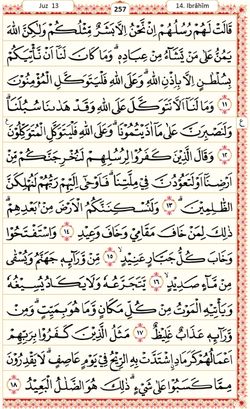 Juz 13
257
14. Ibrâhîm
قَالَتْ لَهُمْ رُسُلُهُمْ إِنْ نَحْنُ إِلَّا بَشَرٌ مِثْلُكُمْ وَلَكِنَّ اللَّهَ
يَمُنُّ عَلَى مَنْ يَشَاءُ مِنْ عِبَادِهِ وَمَا كَانَ لَنَا أَنْ نَأْتِيَكُمْ
بِسُلْطَانٍ إِلَّا بِإِذْنِ اللَّهِ وَعَلَى اللَّهِ فَلْيَتَوَكَّلِ الْمُؤْمِنُونَ
﴿١١﴾ وَمَا لَنَا أَلَّا نَتَوَكَّلَ عَلَى اللَّهِ وَقَدْ هَدَانَا سُبُلَنَا
وَلَنَصْبِرَنَّ عَلَى مَا آذَيْتُمُونَا وَعَلَى اللَّهِ فَلْيَتَوَكَّلِ الْمُتَوَكِّلُونَ
﴿١٢﴾ وَقَالَ الَّذِينَ كَفَرُوا لِرُسُلِهِمْ لَنُخْرِجَنَّكُمْ مِنْ
أَرْضِنَا أَوْ لَتَعُودُنَّ فِي مِلَّتِنَا فَأَوْحَى إِلَيْهِمْ رَبُّهُمْ لَنُهْلِكَنَّ
الظَّالِمِينَ ﴿١٣﴾ وَلَنُسْكِنَنَّكُمُ الْأَرْضَ مِنْ بَعْدِهِمْ
ذَلِكَ لِمَنْ خَافَ مَقَامِي وَخَافَ وَعِيدِ ﴿١٤﴾ وَاسْتَفْتَحُوا
وَخَابَ كُلُّ جَبَّارٍ عَنِيدٍ ﴿١٥﴾ مِنْ وَرَائِهِ جَهَنَّمُ وَيُسْقَى
مِنْ مَاءٍ صَدِيدٍ ﴿١٦﴾ يَتَجَرَّعُهُ وَلَا يَكَادُ يُسِيغُهُ
وَيَأْتِيهِ الْمَوْتُ مِنْ كُلِّ مَكَانٍ وَمَا هُوَ بِمَيِّتٍ وَمِنْ
وَرَائِهِ عَذَابٌ غَلِيظٌ ﴿١٧﴾ مَثَلُ الَّذِينَ كَفَرُوا بِرَبِّهِمْ
أَعْمَالُهُمْ كَرَمَادٍ اشْتَدَّتْ بِهِ الرِّيحُ فِي يَوْمٍ عَاصِفٍ لَا يَقْدِرُونَ
مِمَّا كَسَبُوا عَلَى شَيْءٍ ذَلِكَ هُوَ الضَّلَالُ الْبَعِيدُ ﴿١٨﴾